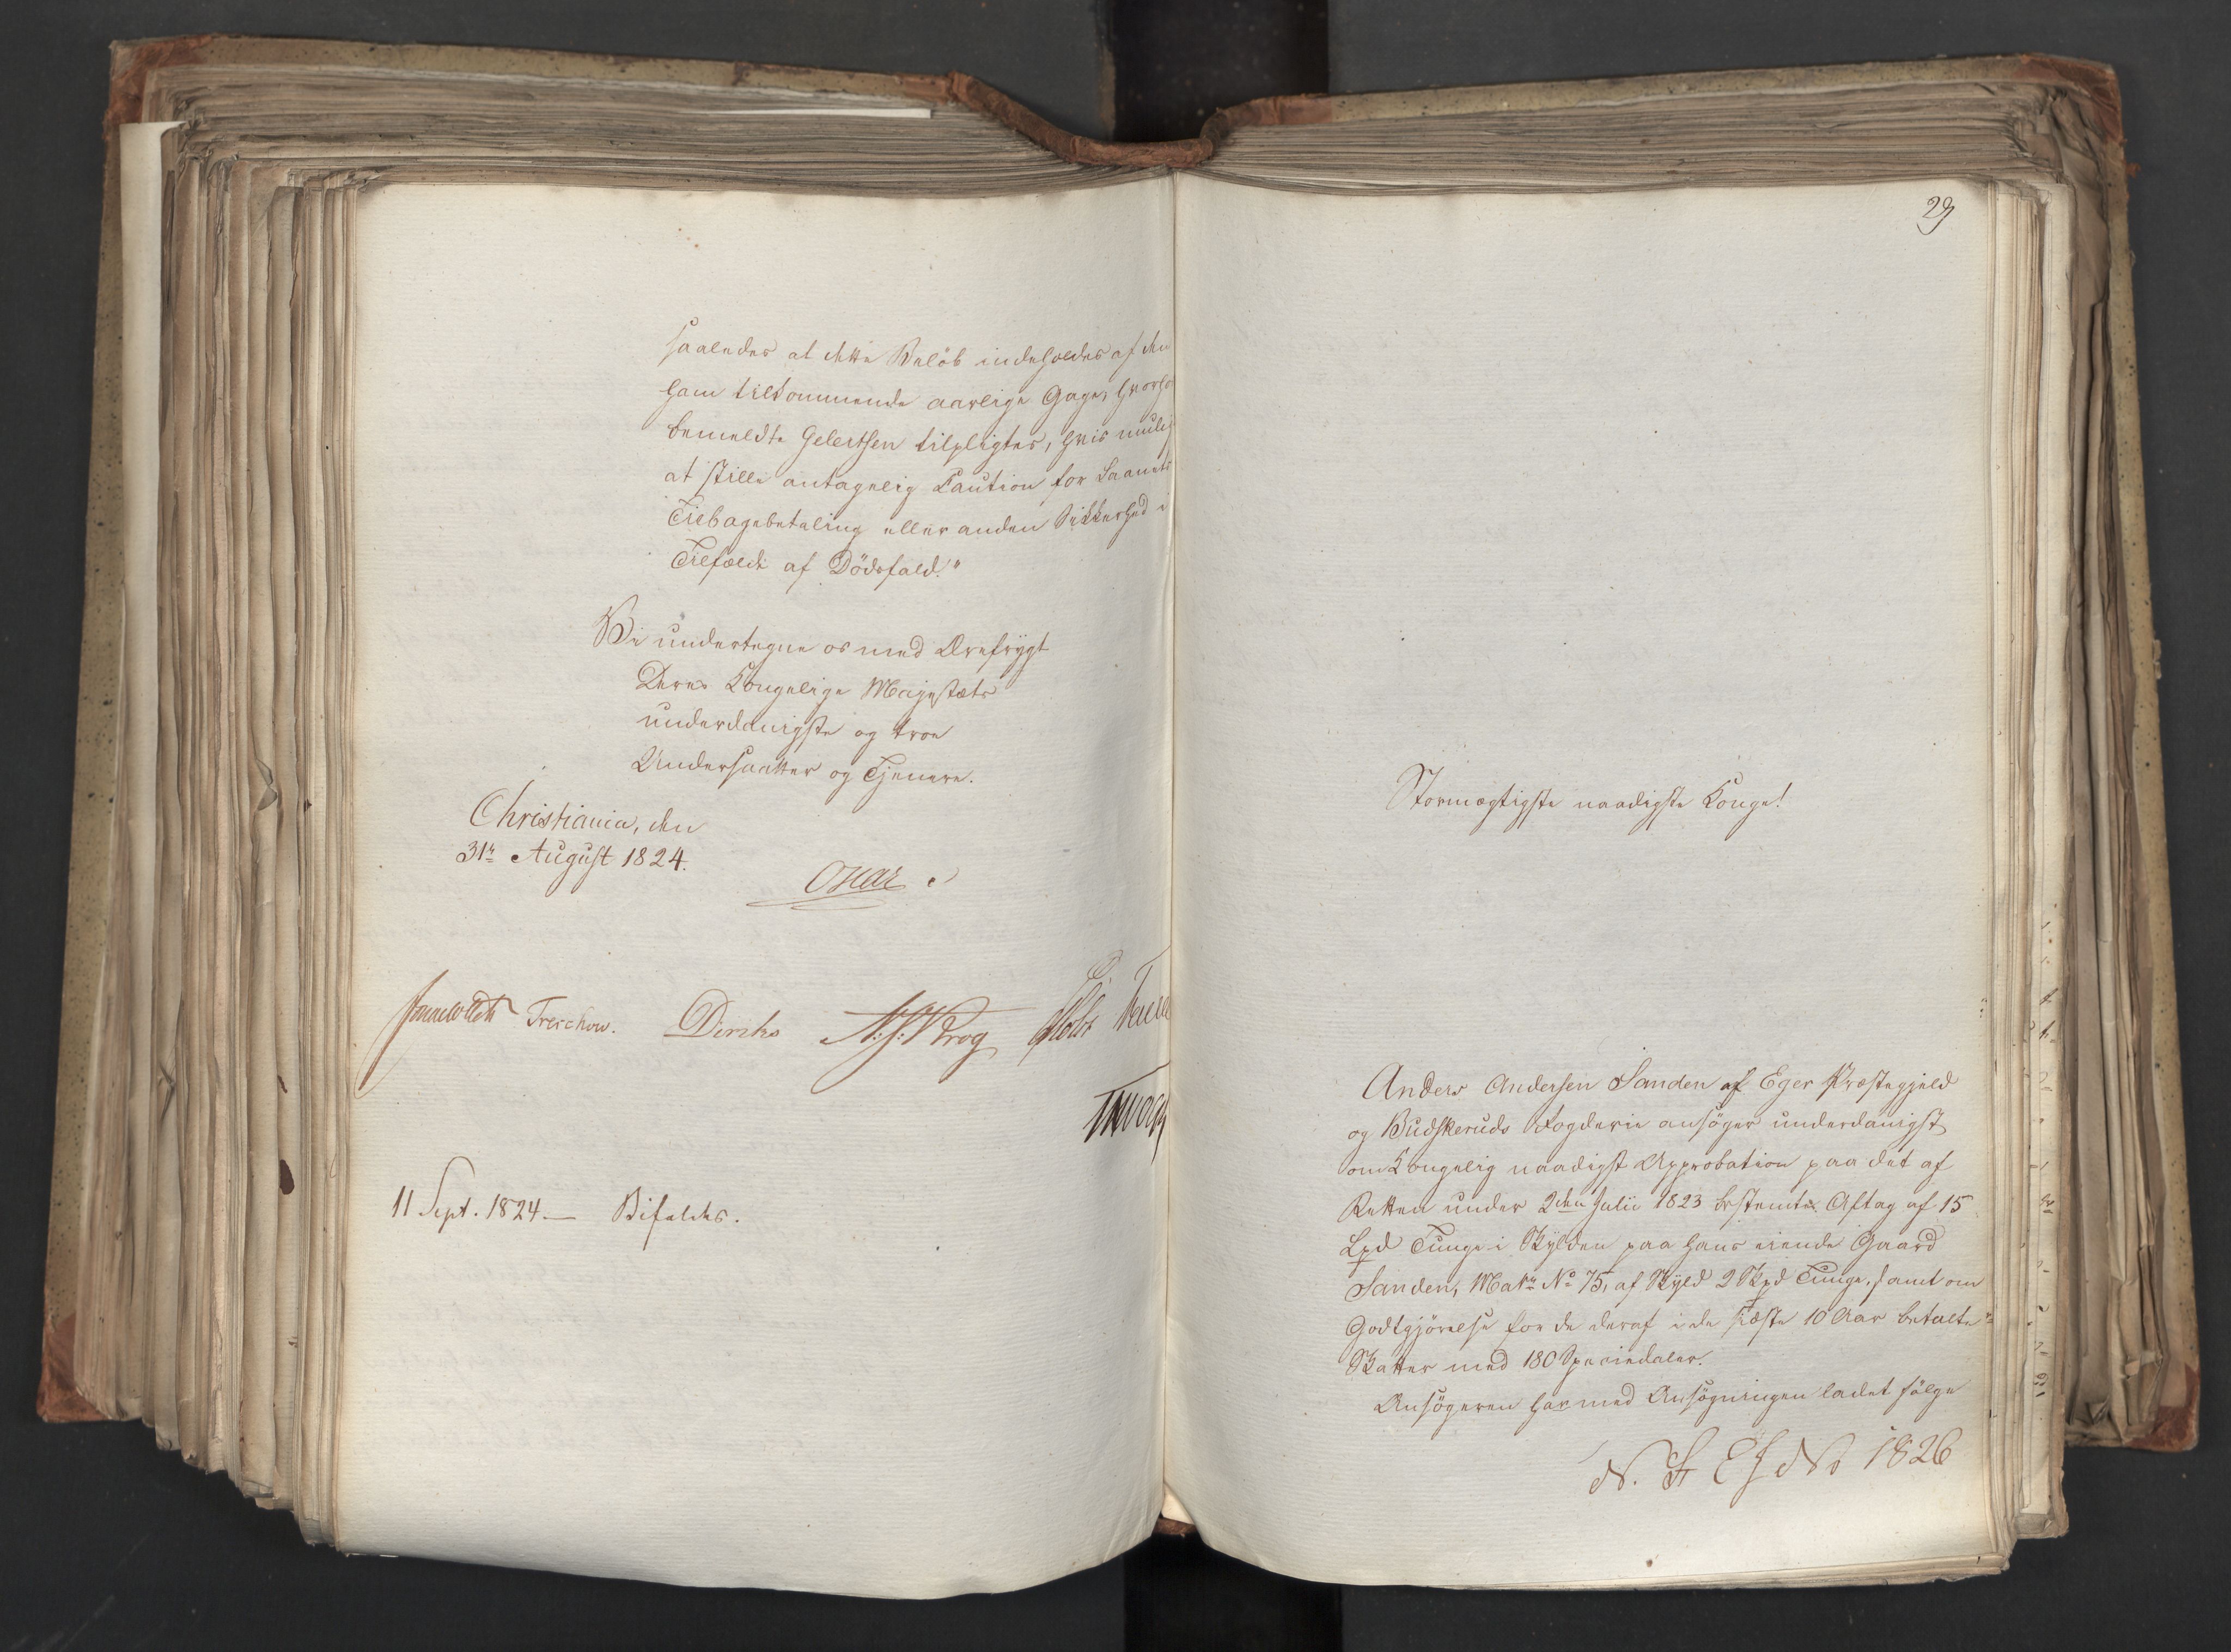 saaledes at dette Beløb indeholdes af den
ham tilkommende aarlige Gage, hvorhos
bemeldte Gelertsen tilpligtes, hvis mulig
at stille antagelig Caution for Laanets
Tilbagebetaling eller anden Sikkerhed i
Tilfælde af Dödsfald."
Vi undertegne os med Ærefrygt
Deres Kongelige Majestæts
underdanigste og troe
Undersaatter og Tjenere.
Christiania, den
31te August 1824.
Oscar
Sommerhielm Treschow. Diriks N: J: Krog Holst
11 Sept. 1824. — Bifaldes.
29
Stormægtigste naadigste Konge!
Anders Andersen Sanden af Eger Præstegjeld
og Budskeruds Fogderie ansöger underdanigst
om Kongelig naadigst Approbation paa det af
Retten under 2den Julii 1823 bestemte Aftag af 15
Lpd Tunge i Skylden paa hans eiende Gaard
Sanden, Matr No 75, af Skyld 2 Skpd Tunge, samt om
Godtgjörelse for de deraf i de sidste 10 Aar betalte
Skatter med 180 Speciedaler.
Ansögeren har med Ansögningen ladet fölge
1826